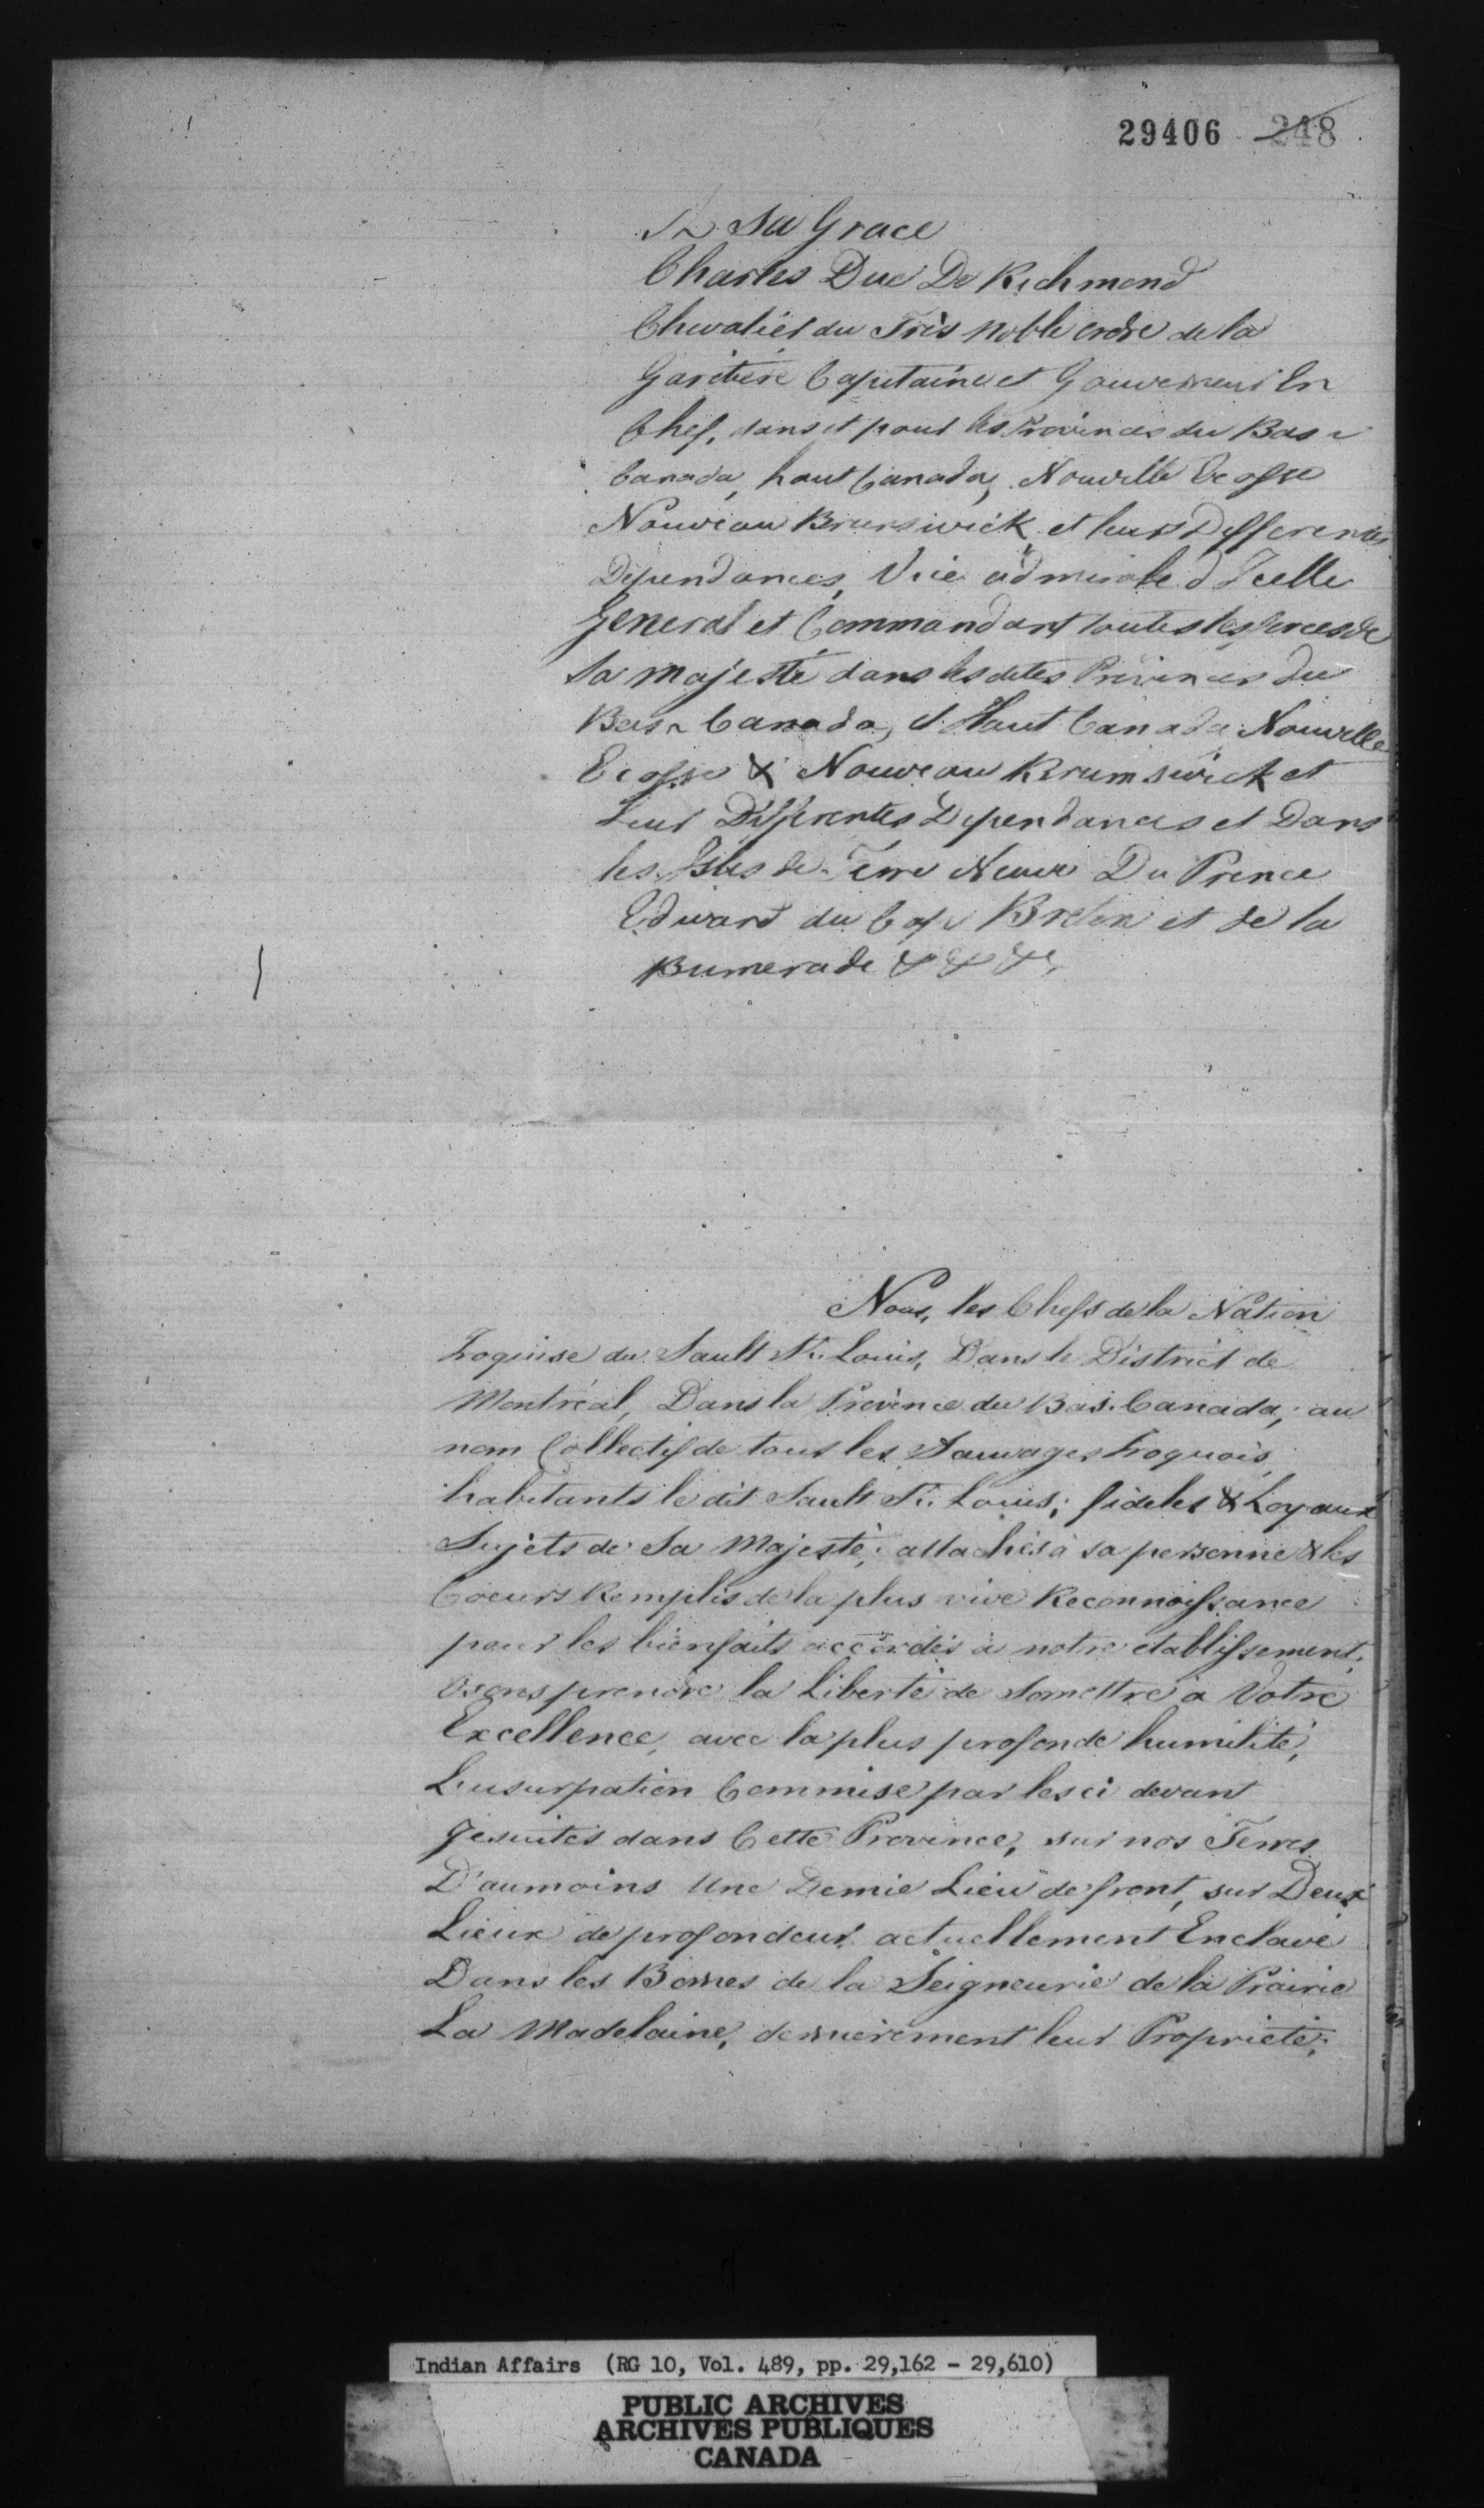 29406 248
A Sa Grace
Charles Duc De Richmond
Chevalier du Très noble ordre de la
Garétiere Capitaine et Gouverneur En
Chef, dans et pour les Provinces du Bas
Canada, haut Canada, Nouvelle Ecosse
Nouveau Brunswick et leurs Differentes
Dependances, Vice admirale d'Icelle
General et Commandant toutes les forces de
Sa Majesté dans les dites Provinces du
Bas Canada, et Haut Canada Nouvelle
Ecosse & Nouveau Brumswick et
Leur Différentes Dependances et Dans
les Isles de Terre Neuve Du Prince
Edward du Cap Breton et de la
Bumerade & & &.
Nous, les Chefs de la Nation
Iroquise du Sault St. Louis, Dans le District de
Montréal, Dans la Province du Bas. Canada; au
nom Collectif de tous les Sauvages Iroquois
habitants le dit Sault St. Louis; fideles & Loyaux
Sujets de Sa Majesté; attachés à sa personne & les
Coeurs Remplis de la plus vive Reconnoissance
pour les bienfaits accordés à notre établissement;
Osons prendre la Liberté de Somettre à Votre
Excellence, avec la plus profonde humilité,
L'usurpation Commise par les ci devant
Jesuites dans Cette Province, sur nos Terres
D'aumoins Une Demie Lieu de front, sur Deux
Lieux de profondeur actuellement Enclavé
Dans les Bornes de la Seigneurie de la Prairie
La Madelaine, dernièrement leur Proprieté;
Indian Affairs (RG 10, Vol. 489, pp. 29,162 - 29,610)
PUBLIC ARCHIVES
ARCHIVES PUBLIQUES
CANADA